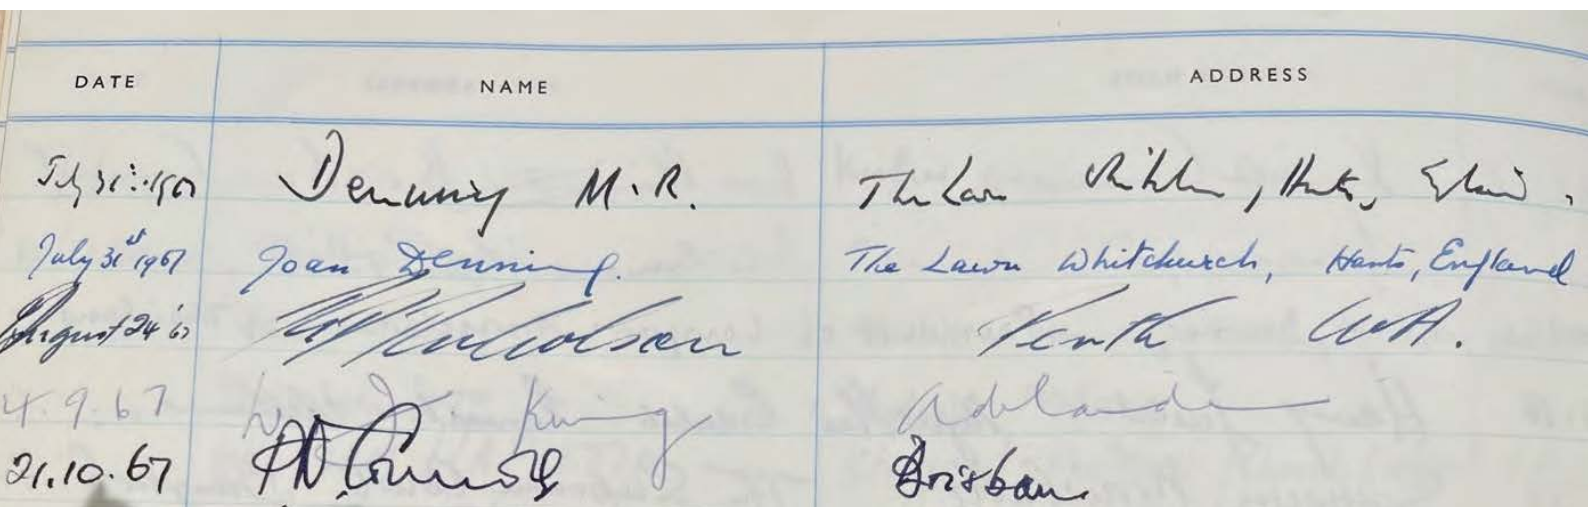 DATE NAME ADDRESS
July 31st 1967 Denning M.R. The Lawn Whitchurch, Hants, England.
July 31st 1967 Joan Denning. The Lawn Whitchurch, Hants, England
August 24 '67 Nicholson Perth W.A.
4.9.67 King Adelaide
21.10.67 Brisbane